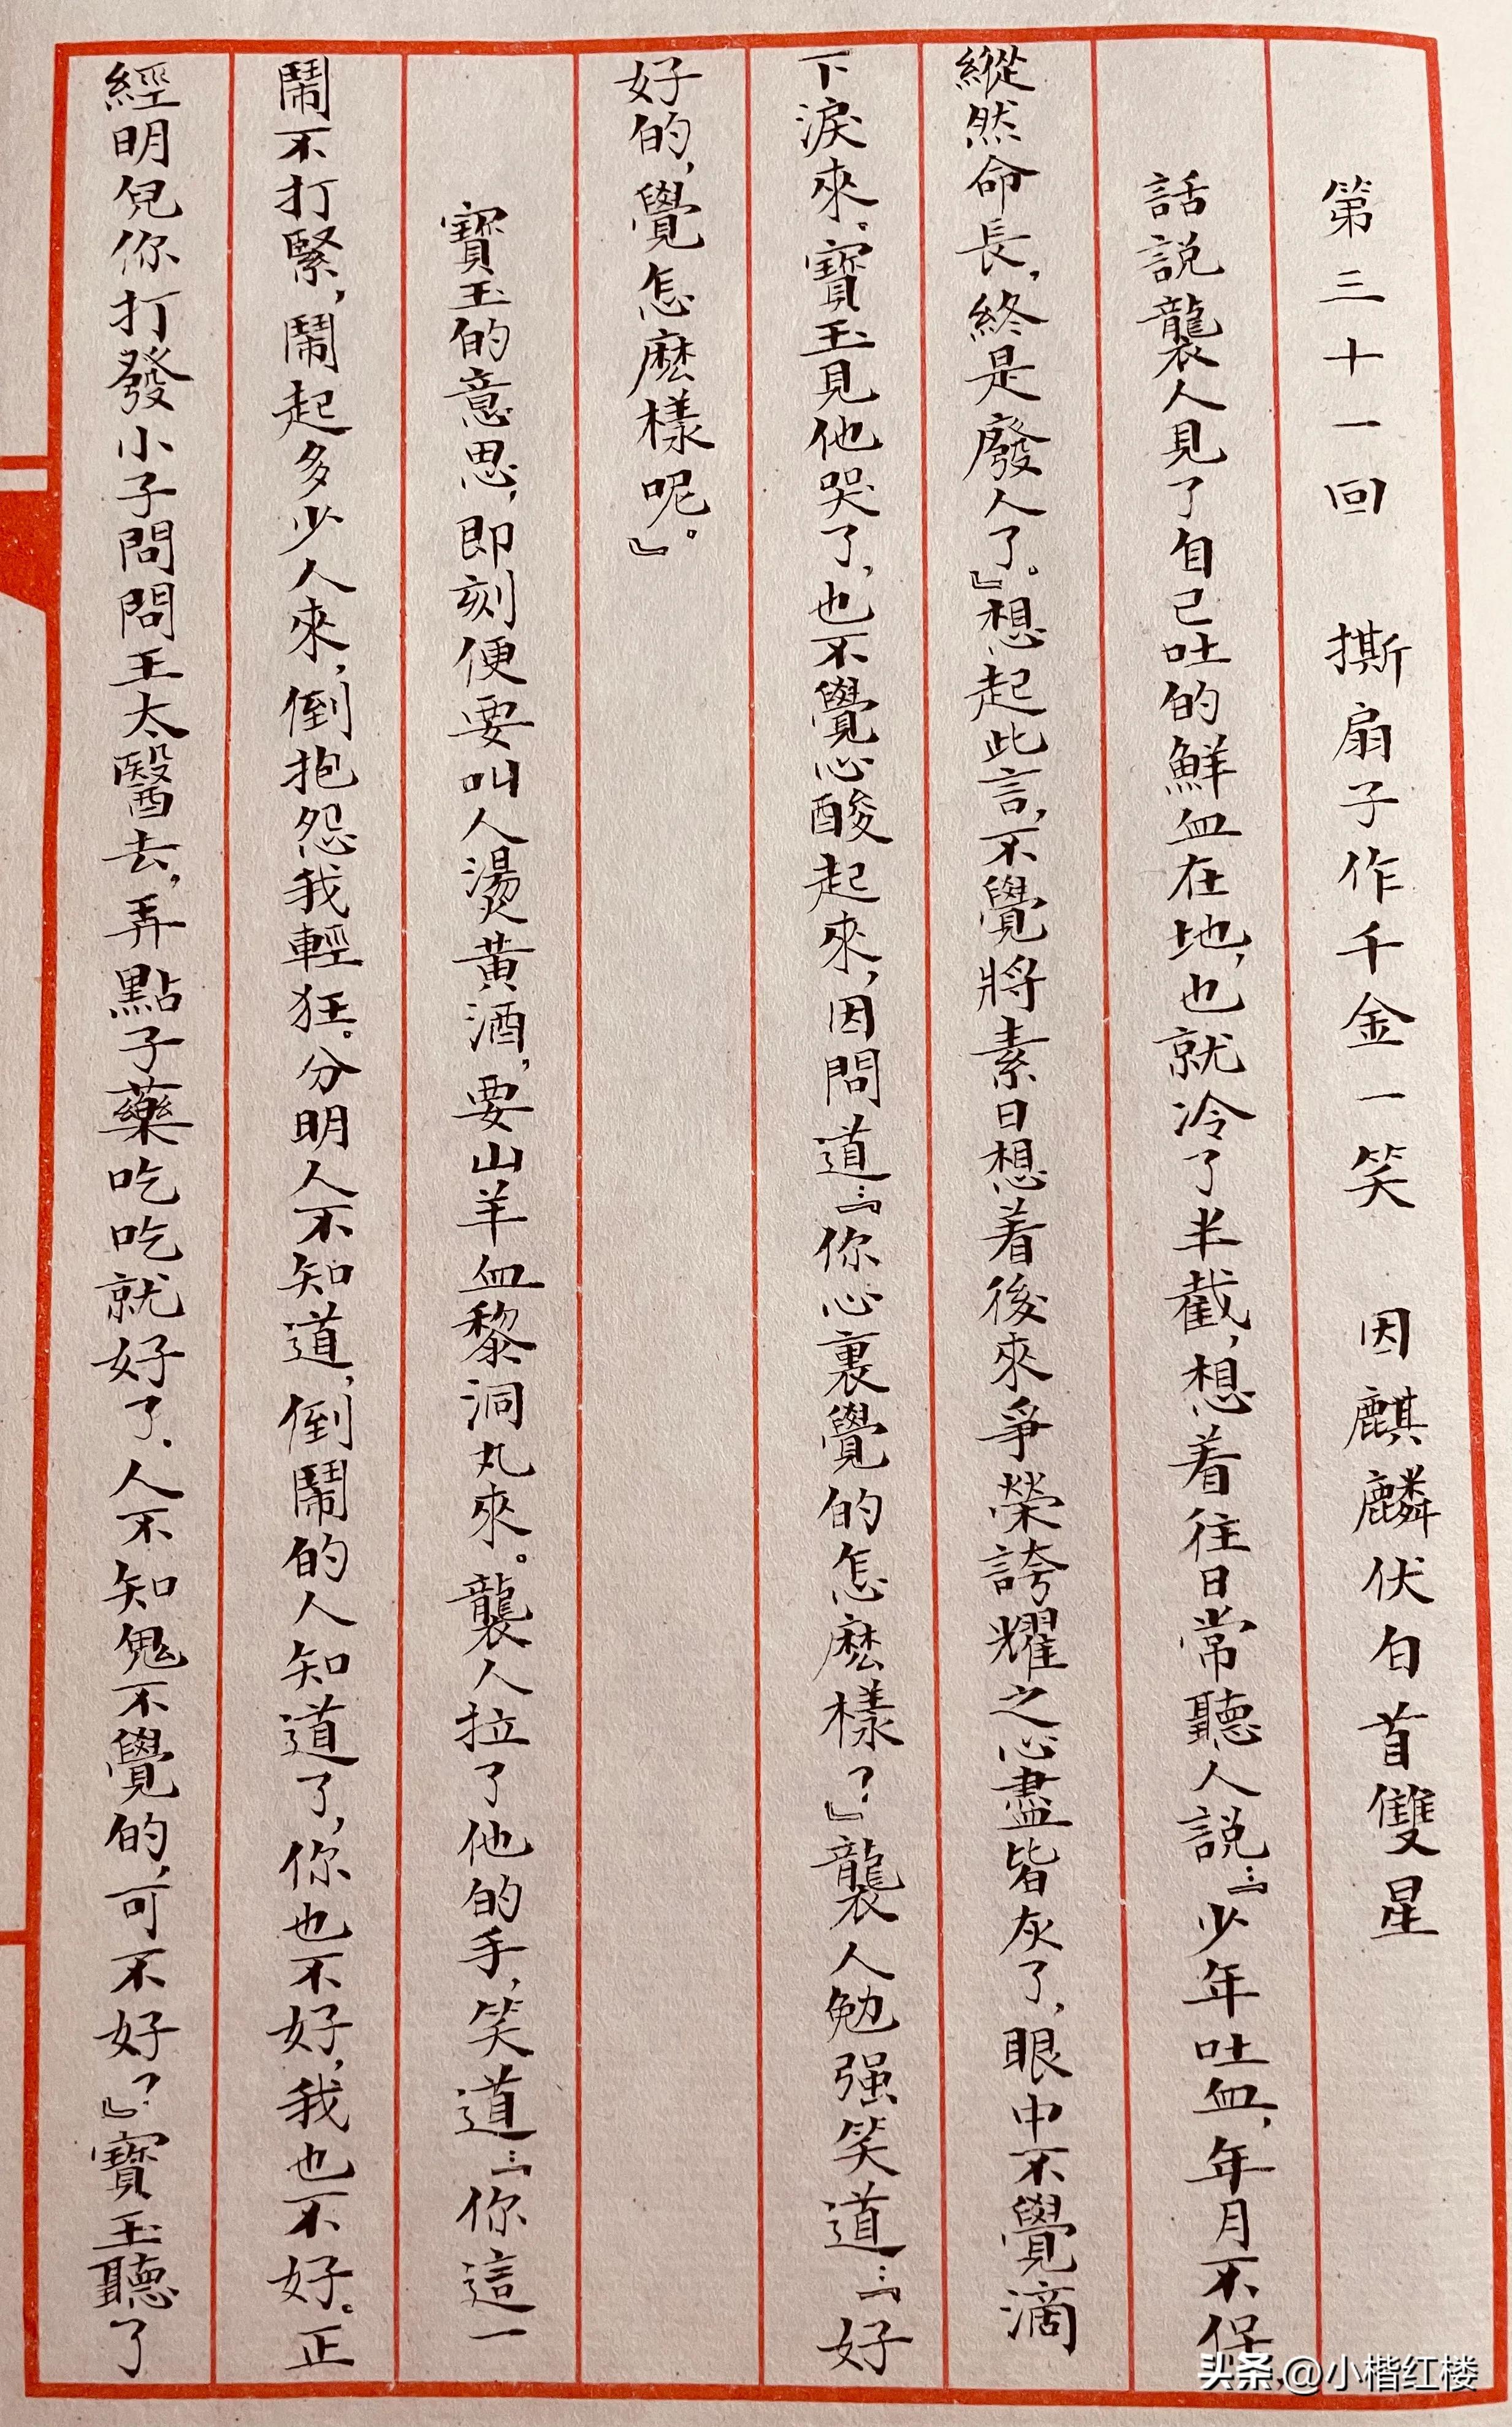 第三十一回　撕扇子作千金一笑　因麒麟伏白首雙星
話說襲人見了自己吐的鮮血在地,也就冷了半截,想着往日常聽人說:『少年吐血,年月不保,
縱然命長,終是廢人了。』想起此言,不覺將素日想着後來爭榮誇耀之心盡皆灰了,眼中不覺滴
下淚來。寶玉見他哭了,也不覺心酸起來,因問道:『你心裏覺的怎麽樣?』襲人勉强笑道:『好
好的,覺怎麽樣呢。』
寶玉的意思,即刻便要叫人燙黃酒,要山羊血黎洞丸來。襲人拉了他的手,笑道:『你這一
鬧不打緊,鬧起多少人來,倒抱怨我輕狂。分明人不知道,倒鬧的人知道了,你也不好,我也不好。正
經明兒你打發小子問問王太醫去,弄點子藥吃吃就好了.人不知鬼不覺的,可不好?』寶玉聽了
头条 @小楷红楼